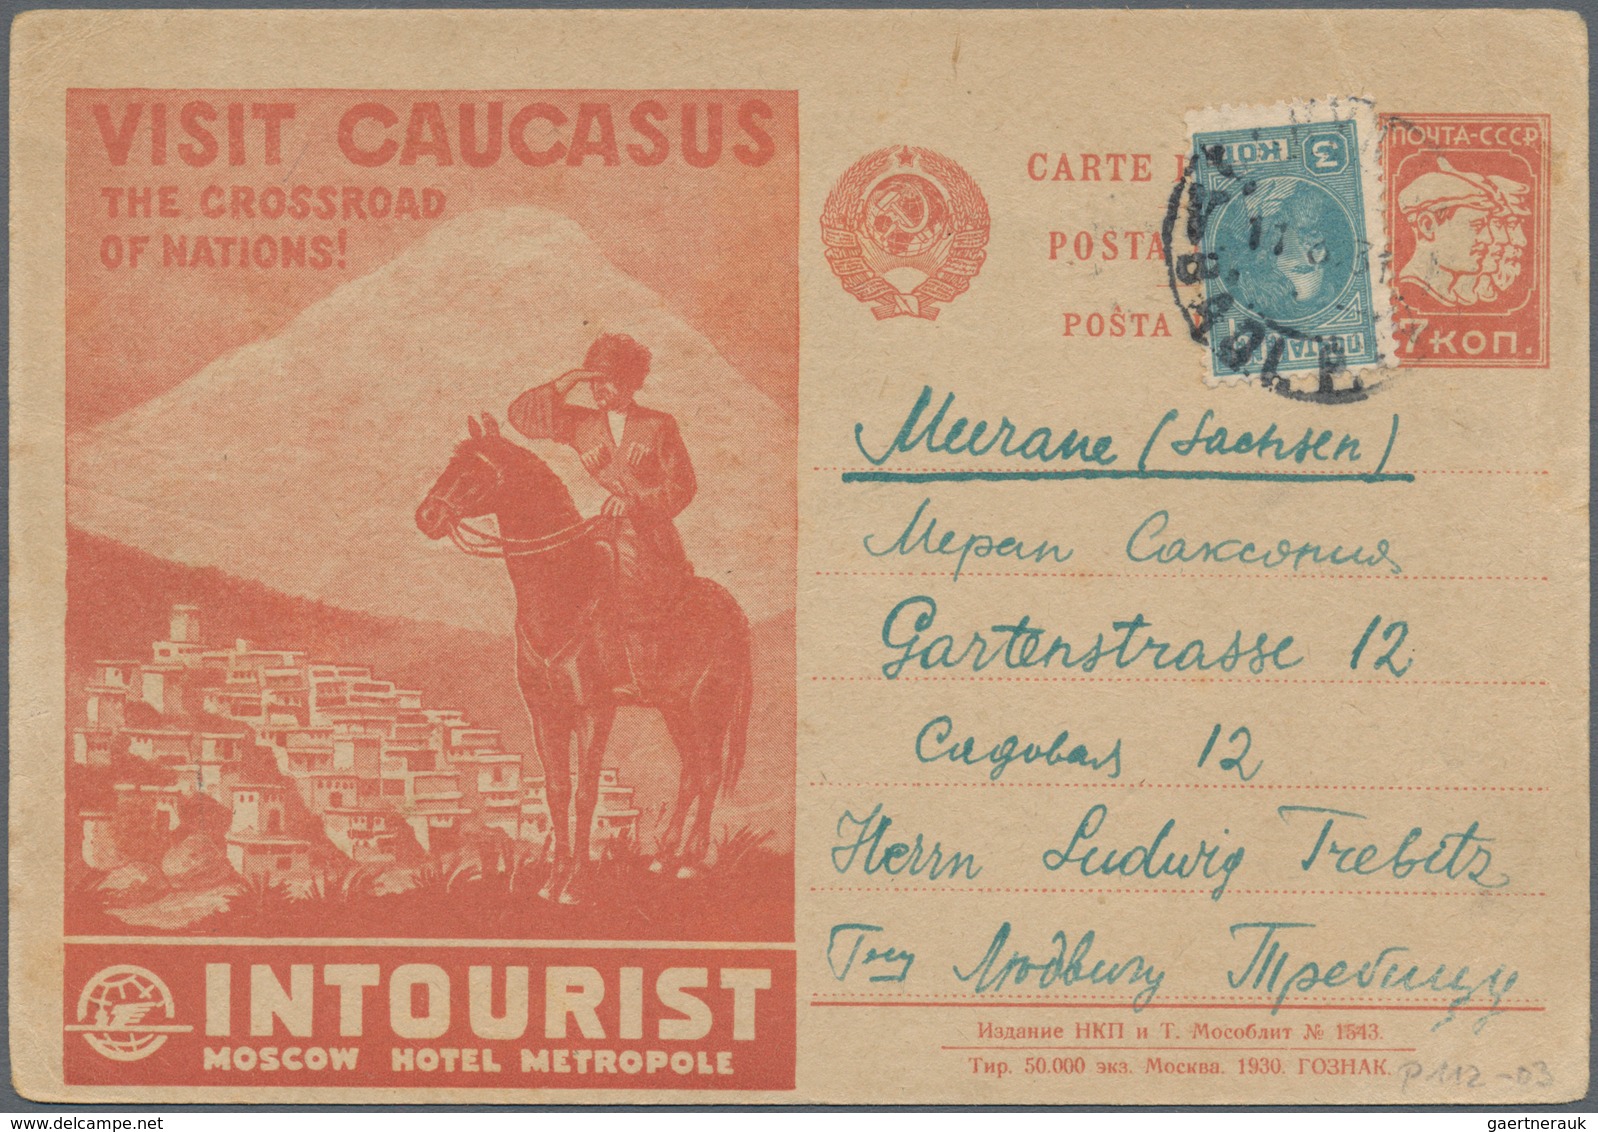 VISIT CAUCASUS
THE CROSSROAD
OF NATIONS!
INTOURIST
MOSCOW HOTEL METROPOLE
CARTE
POSTA
POŠTA
3
КОП
ПОЧТА-СССР
7 КОП.
Meerane (Sachsen)
Меран Саксония
Gartenstrasse 12
Садовая 12
Herrn Ludwig Trebitz
Г-ну Людвигу Требицу
Издание НКП и Т. Мособлит № 1543.
Тир. 50.000 экз. Москва. 1930. ГОЗНАК.
P 112 -03
gaertnerauk